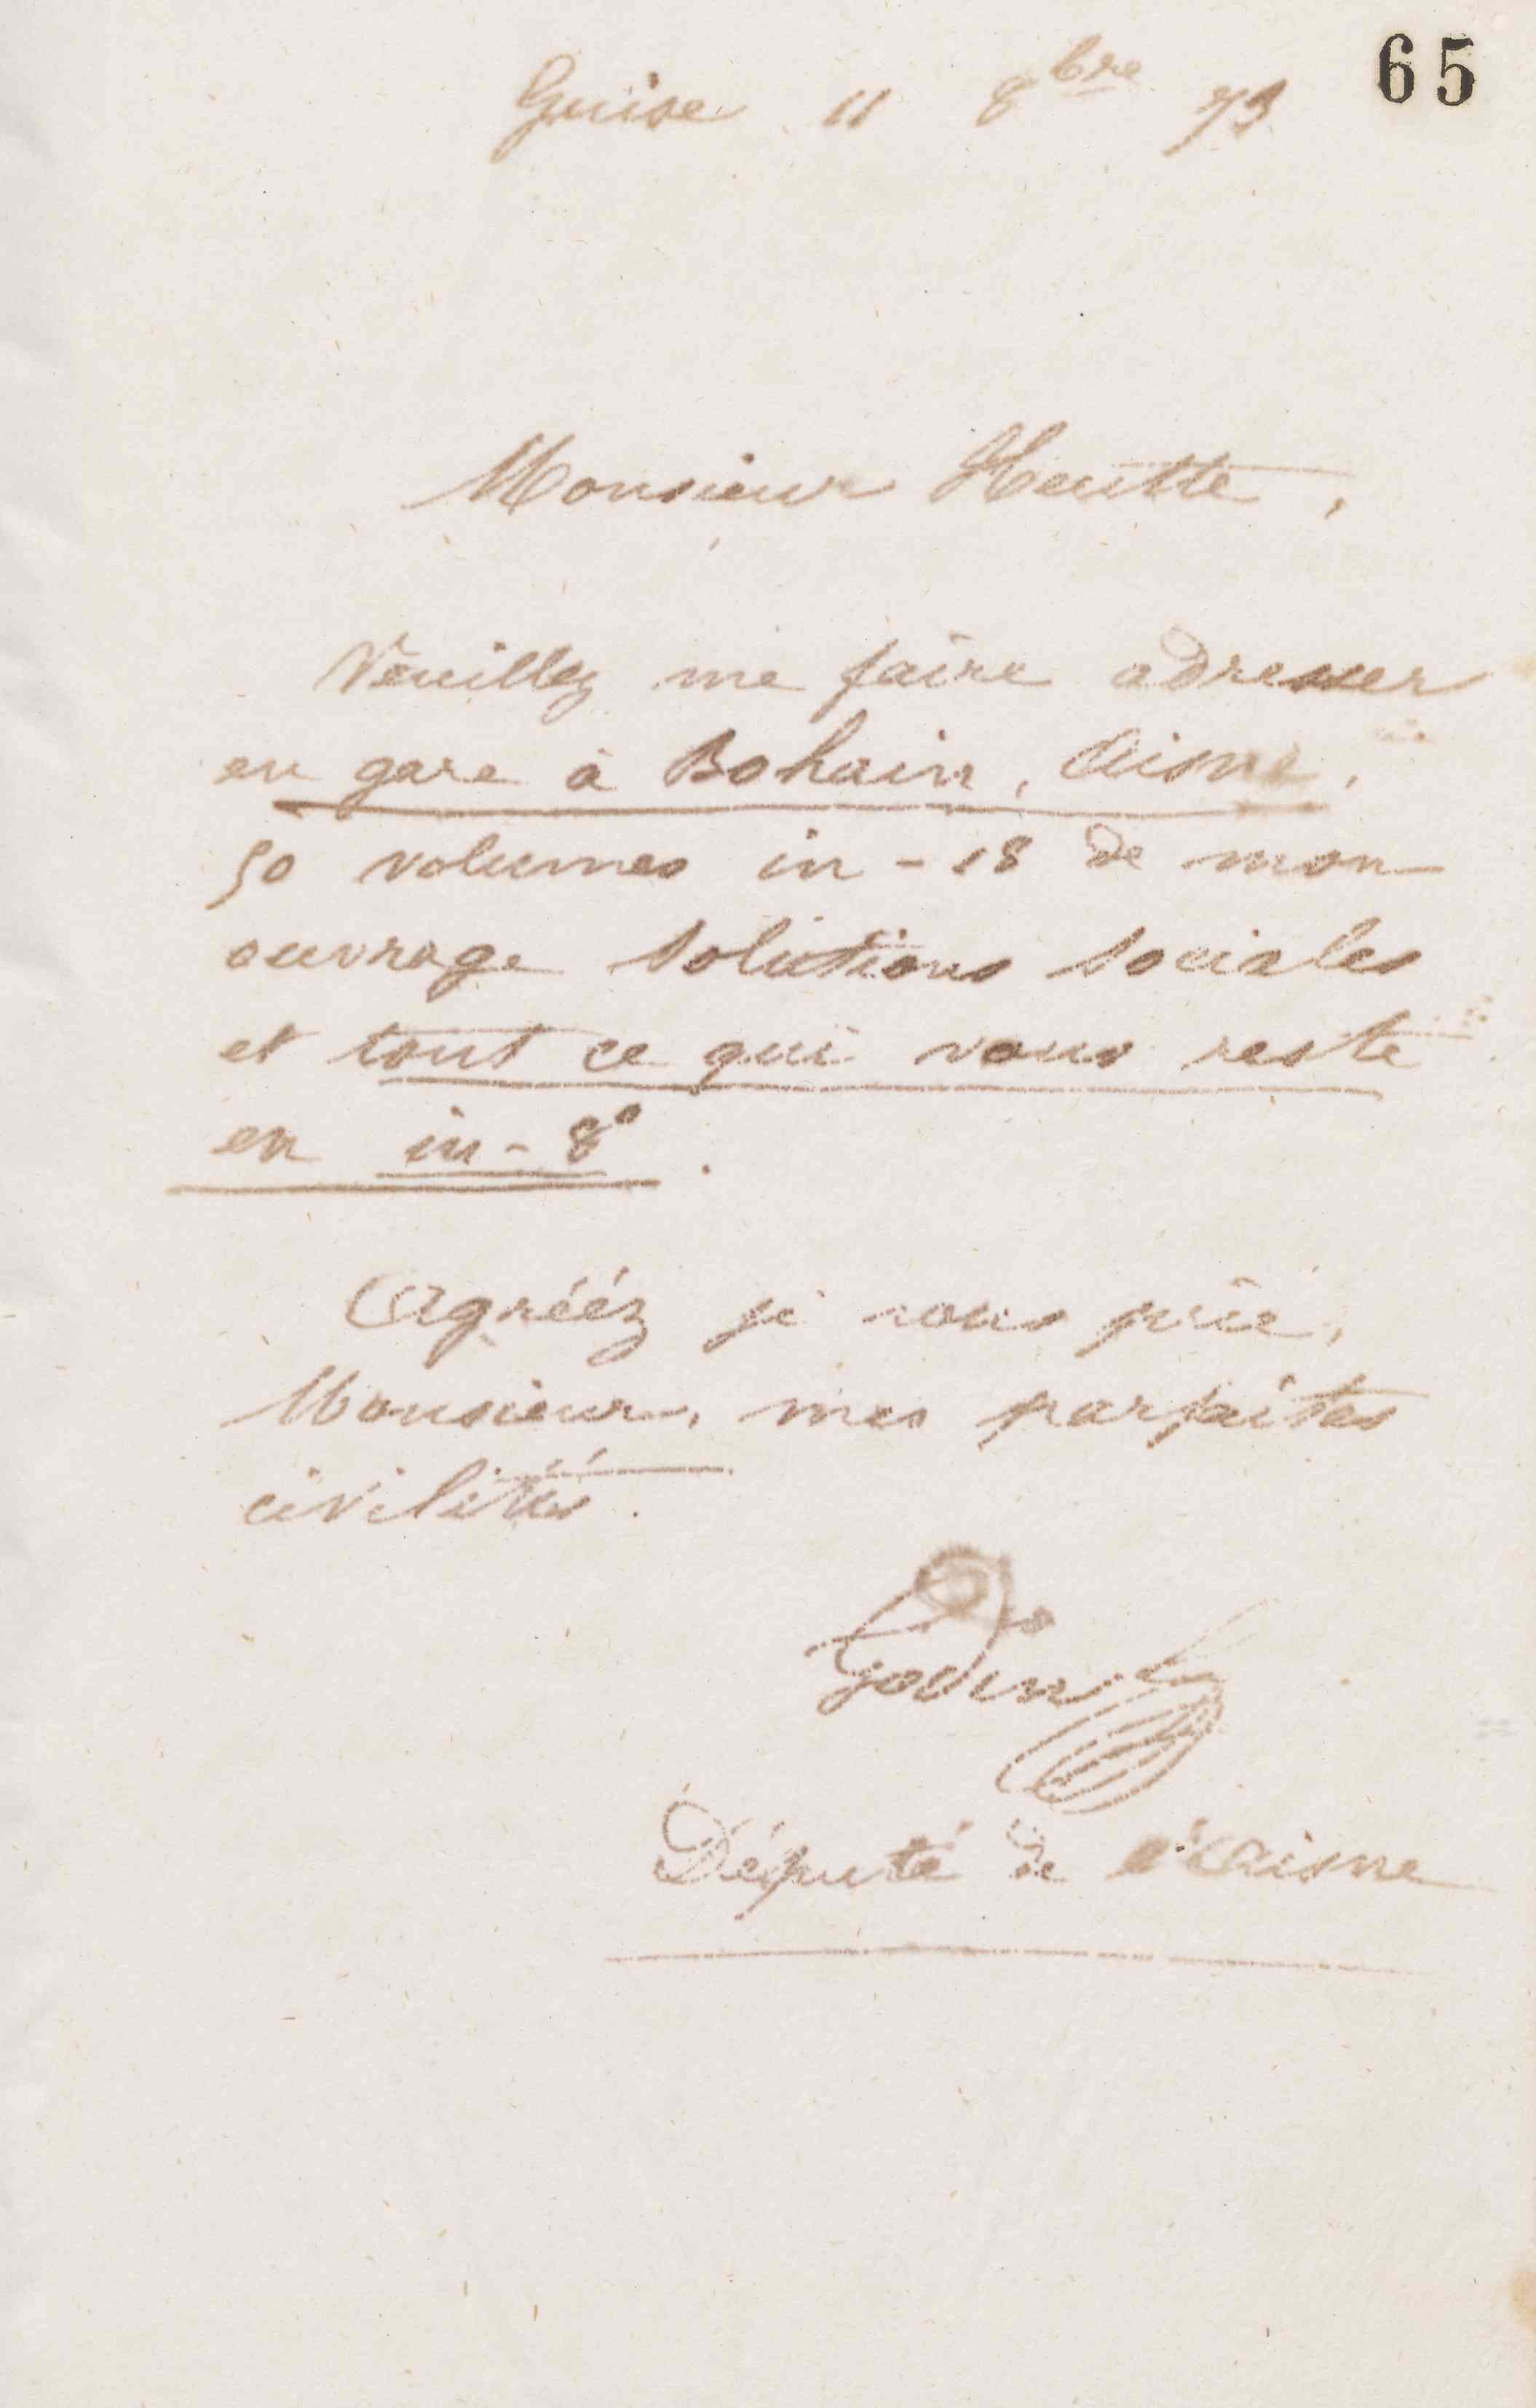 65
Guise 11 8bre 73
Monsieur Heutte,
Veuillez me faire adresser
en gare à Bohain, Aisne,
50 volumes in-18 de mon
ouvrage Solutions Sociales
et tout ce qui vous reste
en in-8°.
Agrééz je vous prie,
Monsieur, mes parfaites
civilités.
Godin
Député de l'Aisne